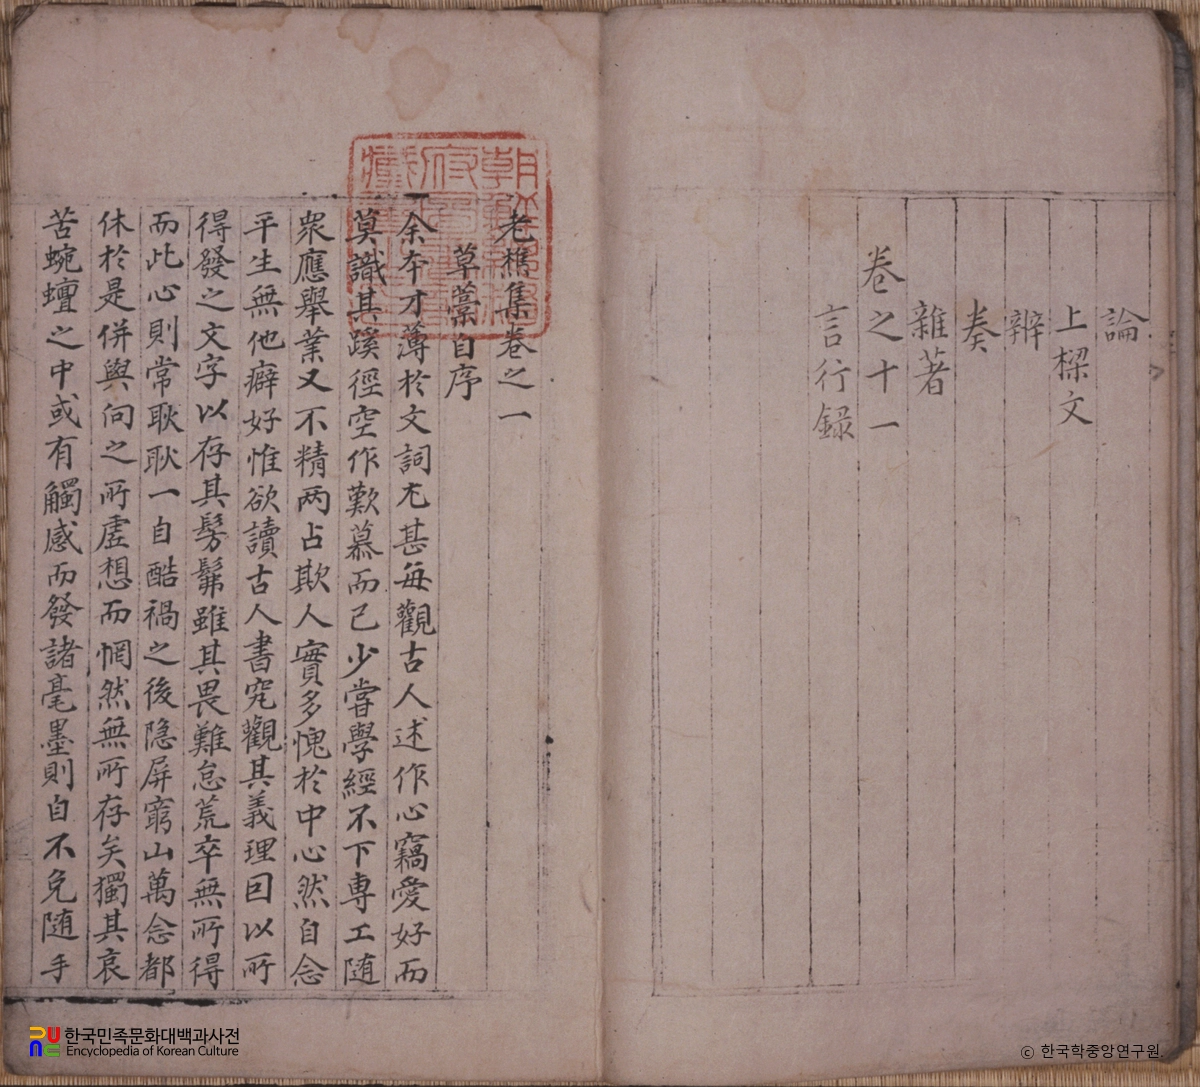 論
上樑文
辨
奏
雜著
卷之十一
言行錄
老樵集卷之一
草藁自序
余本才薄於文詞尤甚每觀古人述作心竊愛好而
莫識其蹊徑空作歎慕而已少嘗學經不下專工随
衆應舉業又不精两占欺人實多愧於中心然自念
平生無他癖好惟欲讀古人書究觀其義理因以所
得發之文字以存其髣髴雖其畏難怠荒卒無所得
而此心則常耿耿一自酷禍之後隐屏窮山萬念都
休於是併與向之所虛想而惘然無所存矣獨其哀
苦蜿蟺之中或有觸感而發諸毫墨則自不免随手
한국민족문화대백과사전
Encyclopedia of Korean Culture
© 한국학중앙연구원.